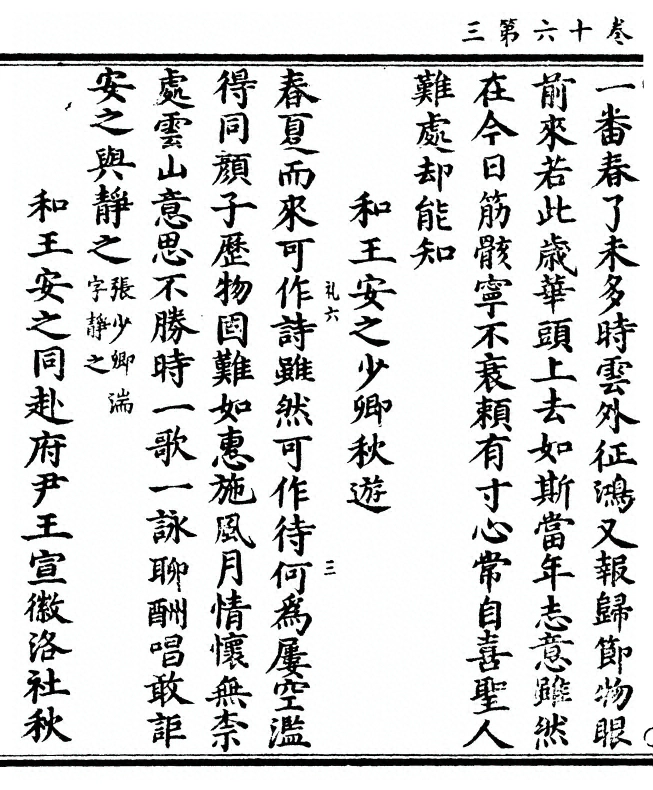 卷十六第三
一番春了未多時雲外征鴻又報歸節物眼
前來若此歲華頭上去如斯當年志意雖然
在今日筋骸寧不衰頼有寸心常自喜聖人
難處却能知
和王安之少卿秋遊
礼六
三
春夏而來可作詩雖然可作待何爲屢空濫
得同顏子歷物固難如惠施風月情懷無柰
處雲山意思不勝時一歌一詠聊酬唱敢詎
安之與靜之
張少卿湍
字靜之
和王安之同赴府尹王宣徽洛社秋